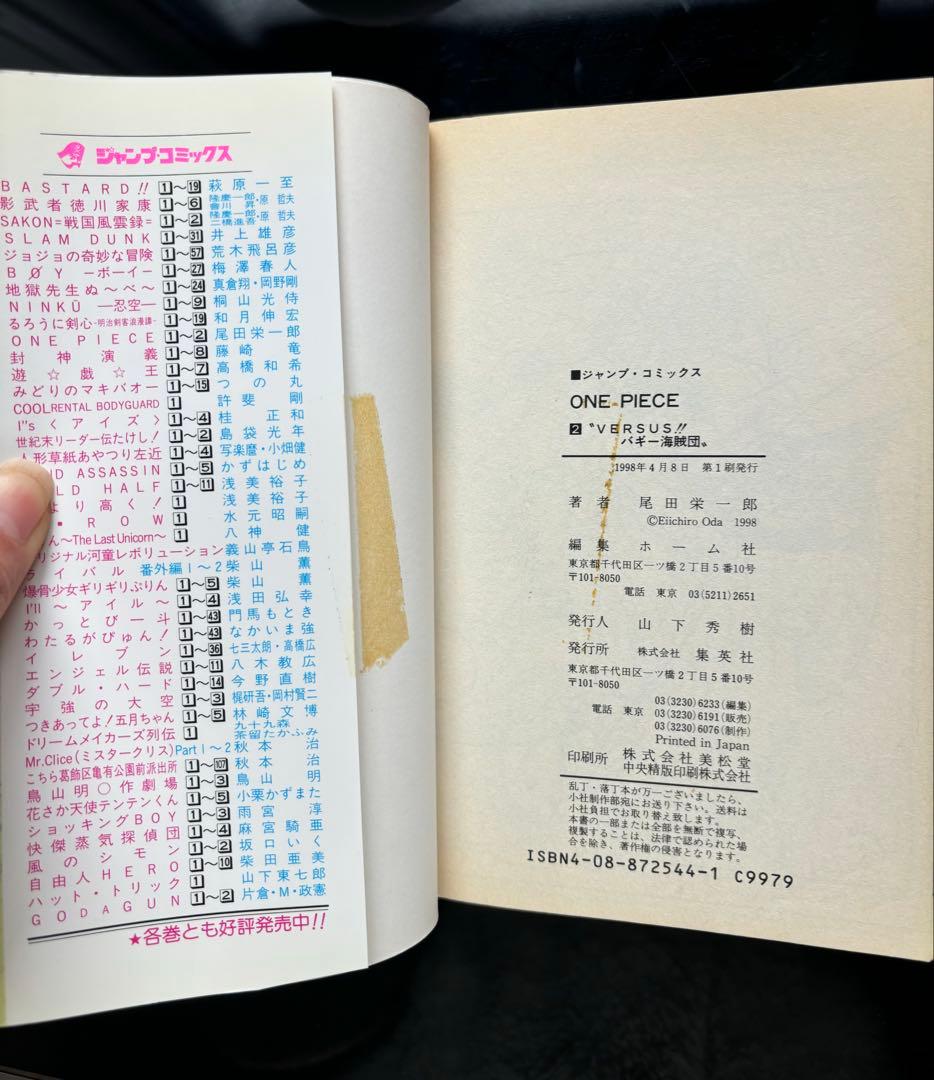 ジャンプ・コミックス
BASTARD!! 1～19 萩原一至
影武者徳川家康 1～6 隆慶一郎・會川昇・原哲夫
SAKON=戦国風雲録= 1～2 隆慶一郎・二橋進吾・原哲夫
SLAM DUNK 1～31 井上雄彦
ジョジョの奇妙な冒険 1～57 荒木飛呂彦
BØY —ボーイ— 1～27 梅澤春人
地獄先生ぬ～べ～ 1～24 真倉翔・岡野剛
NINKŪ —忍空— 1～9 桐山光侍
るろうに剣心-明治剣客浪漫譚- 1～19 和月伸宏
ONE PIECE 1～2 尾田栄一郎
封神演義 1～8 藤崎竜
遊☆戯☆王 1～7 高橋和希
みどりのマキバオー 1～15 つの丸
COOL RENTAL BODYGUARD 1 許斐剛
I"s〈アイズ〉 1～4 桂正和
世紀末リーダー伝たけし! 1～2 島袋光年
人形草紙あやつり左近 1～4 写楽麿・小畑健
ND ASSASSIN 1～5 かずはじめ
LD HALF 1～11 浅美裕子
より高く! 1 浅美裕子
・ROW 1 水元昭嗣
ん～The Last Unicorn～ 1 八神健
リジナル河童レボリューション 義山亭石鳥
ライバル 番外編1～2 柴山薫
爆骨少女ギリギリぷりん 1～5 柴山薫
I'll～アイル～ 1～4 浅田弘幸
かっとび一斗 1～43 門馬もとき
わたるがぴゅん! 1～43 なかいま強
イレブン 1～36 七三太朗・高橋広
エンジェル伝説 1～11 八木教広
ダブル・ハード 1～14 今野直樹
宇強の大空 1～3 梶研吾・岡村賢二
つきあってよ!五月ちゃん 1～5 林崎文博
ドリームメイカーズ列伝 1 九十九森 茶留たかふみ
Mr.Clice(ミスタークリス) Part 1～2 秋本治
こちら葛飾区亀有公園前派出所 1～107 秋本治
鳥山明○作劇場 1～3 鳥山明
花さか天使テンテンくん 1～5 小栗かずまた
ショッキングBOY 1～3 雨宮淳
快傑蒸気探偵団 1～4 麻宮騎亜
風のシモン 1～2 坂口いく
自由人HERO 1～10 柴田亜美
ハット・トリック 1 山下東七郎
GODAGUN 1～2 片倉・M・政憲
★各巻とも好評発売中!!
■ジャンプ・コミックス
ONE PIECE
2 〝VERSUS!!
バギー海賊団〟
1998年4月8日 第1刷発行
著者 尾田栄一郎
©Eiichiro Oda 1998
編集 ホーム社
東京都千代田区一ツ橋2丁目5番10号
〒101-8050
電話 東京 03(5211)2651
発行人 山下秀樹
発行所 株式会社 集英社
東京都千代田区一ツ橋2丁目5番10号
〒101-8050
03(3230)6233(編集)
電話 東京 03(3230)6191(販売)
03(3230)6076(制作)
Printed in Japan
印刷所 株式会社美松堂
中央精版印刷株式会社
乱丁・落丁本が万一ございましたら、
小社制作部宛にお送り下さい。送料は
小社負担でお取り替え致します。
本書の一部または全部を無断で複写、
複製することは、法律で認められた場
合を除き、著作権の侵害となります。
ISBN4-08-872544-1 C9979